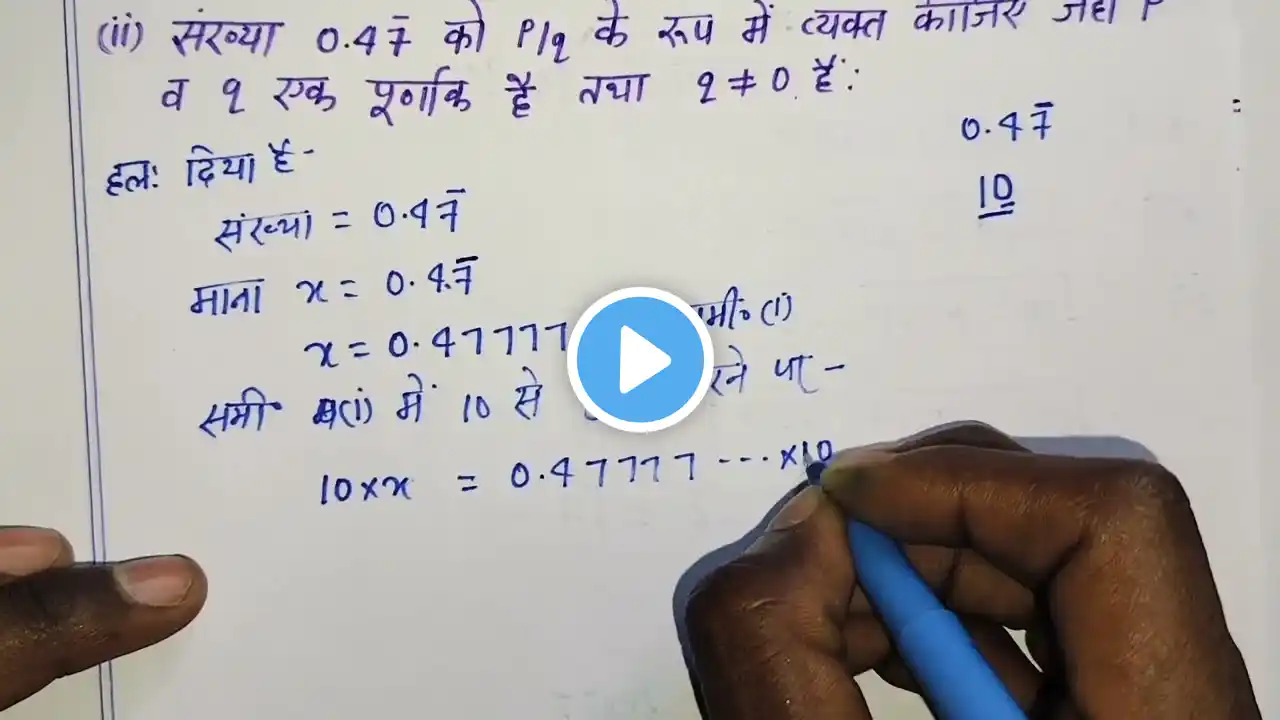 (ii) संख्या 0.47̄ को P/q के रूप में व्यक्त कीजिए जहाँ P
व q एक पूर्णांक है तथा q ≠ 0 है:
0.47̄
10
हल: दिया है-
संख्या = 0.47̄
माना x = 0.47̄
x = 0.47777 समी॰ (i)
समी॰ (i) में 10 से रने पर -
10×x = 0.47777 ---.×10